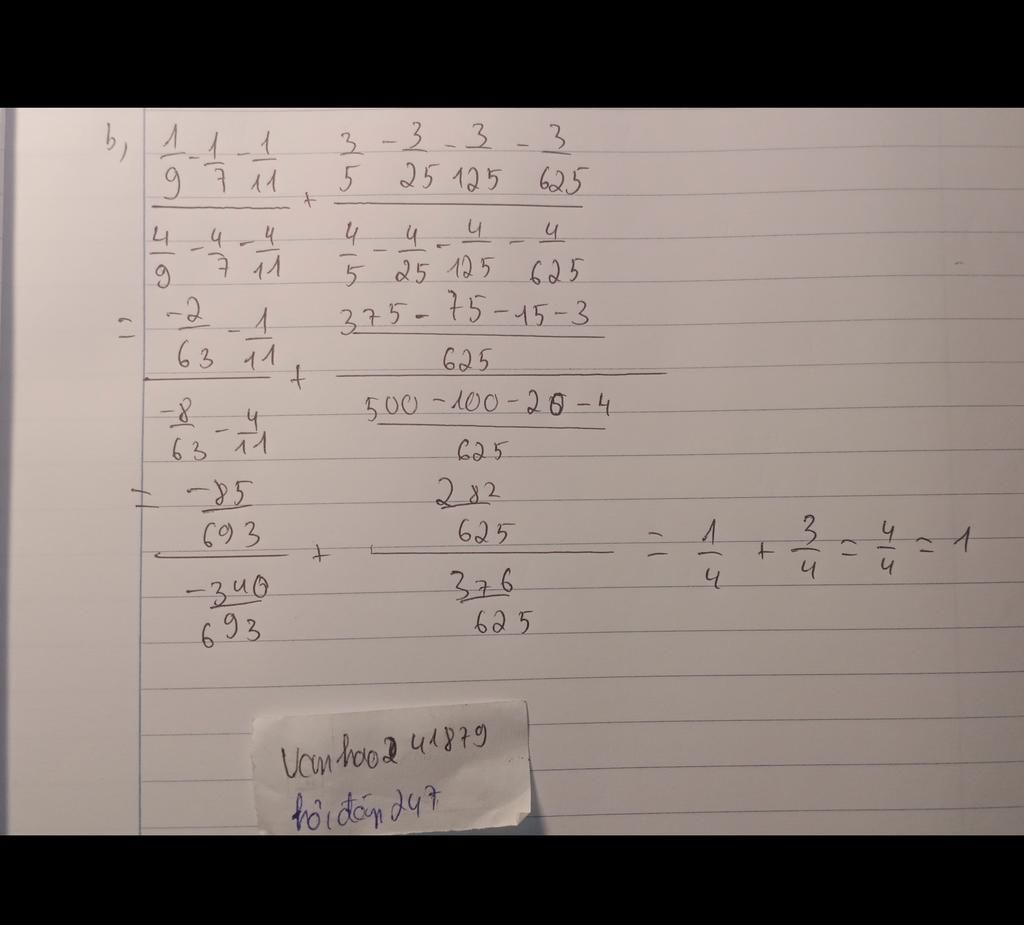 b, 1/9 - 1/7 - 1/11 / 4/9 - 4/7 - 4/11 + 3/5 - 3/25 - 3/125 - 3/625 / 4/5 - 4/25 - 4/125 - 4/625
= -2/63 - 1/11 / -8/63 - 4/11 + 375 - 75 - 15 - 3/625 / 500 - 100 - 20 - 4/625
= -85/693 / -340/693 + 282/625 / 376/625 = 1/4 + 3/4 = 4/4 = 1
vanhao2 41879
hỏi đáp 247